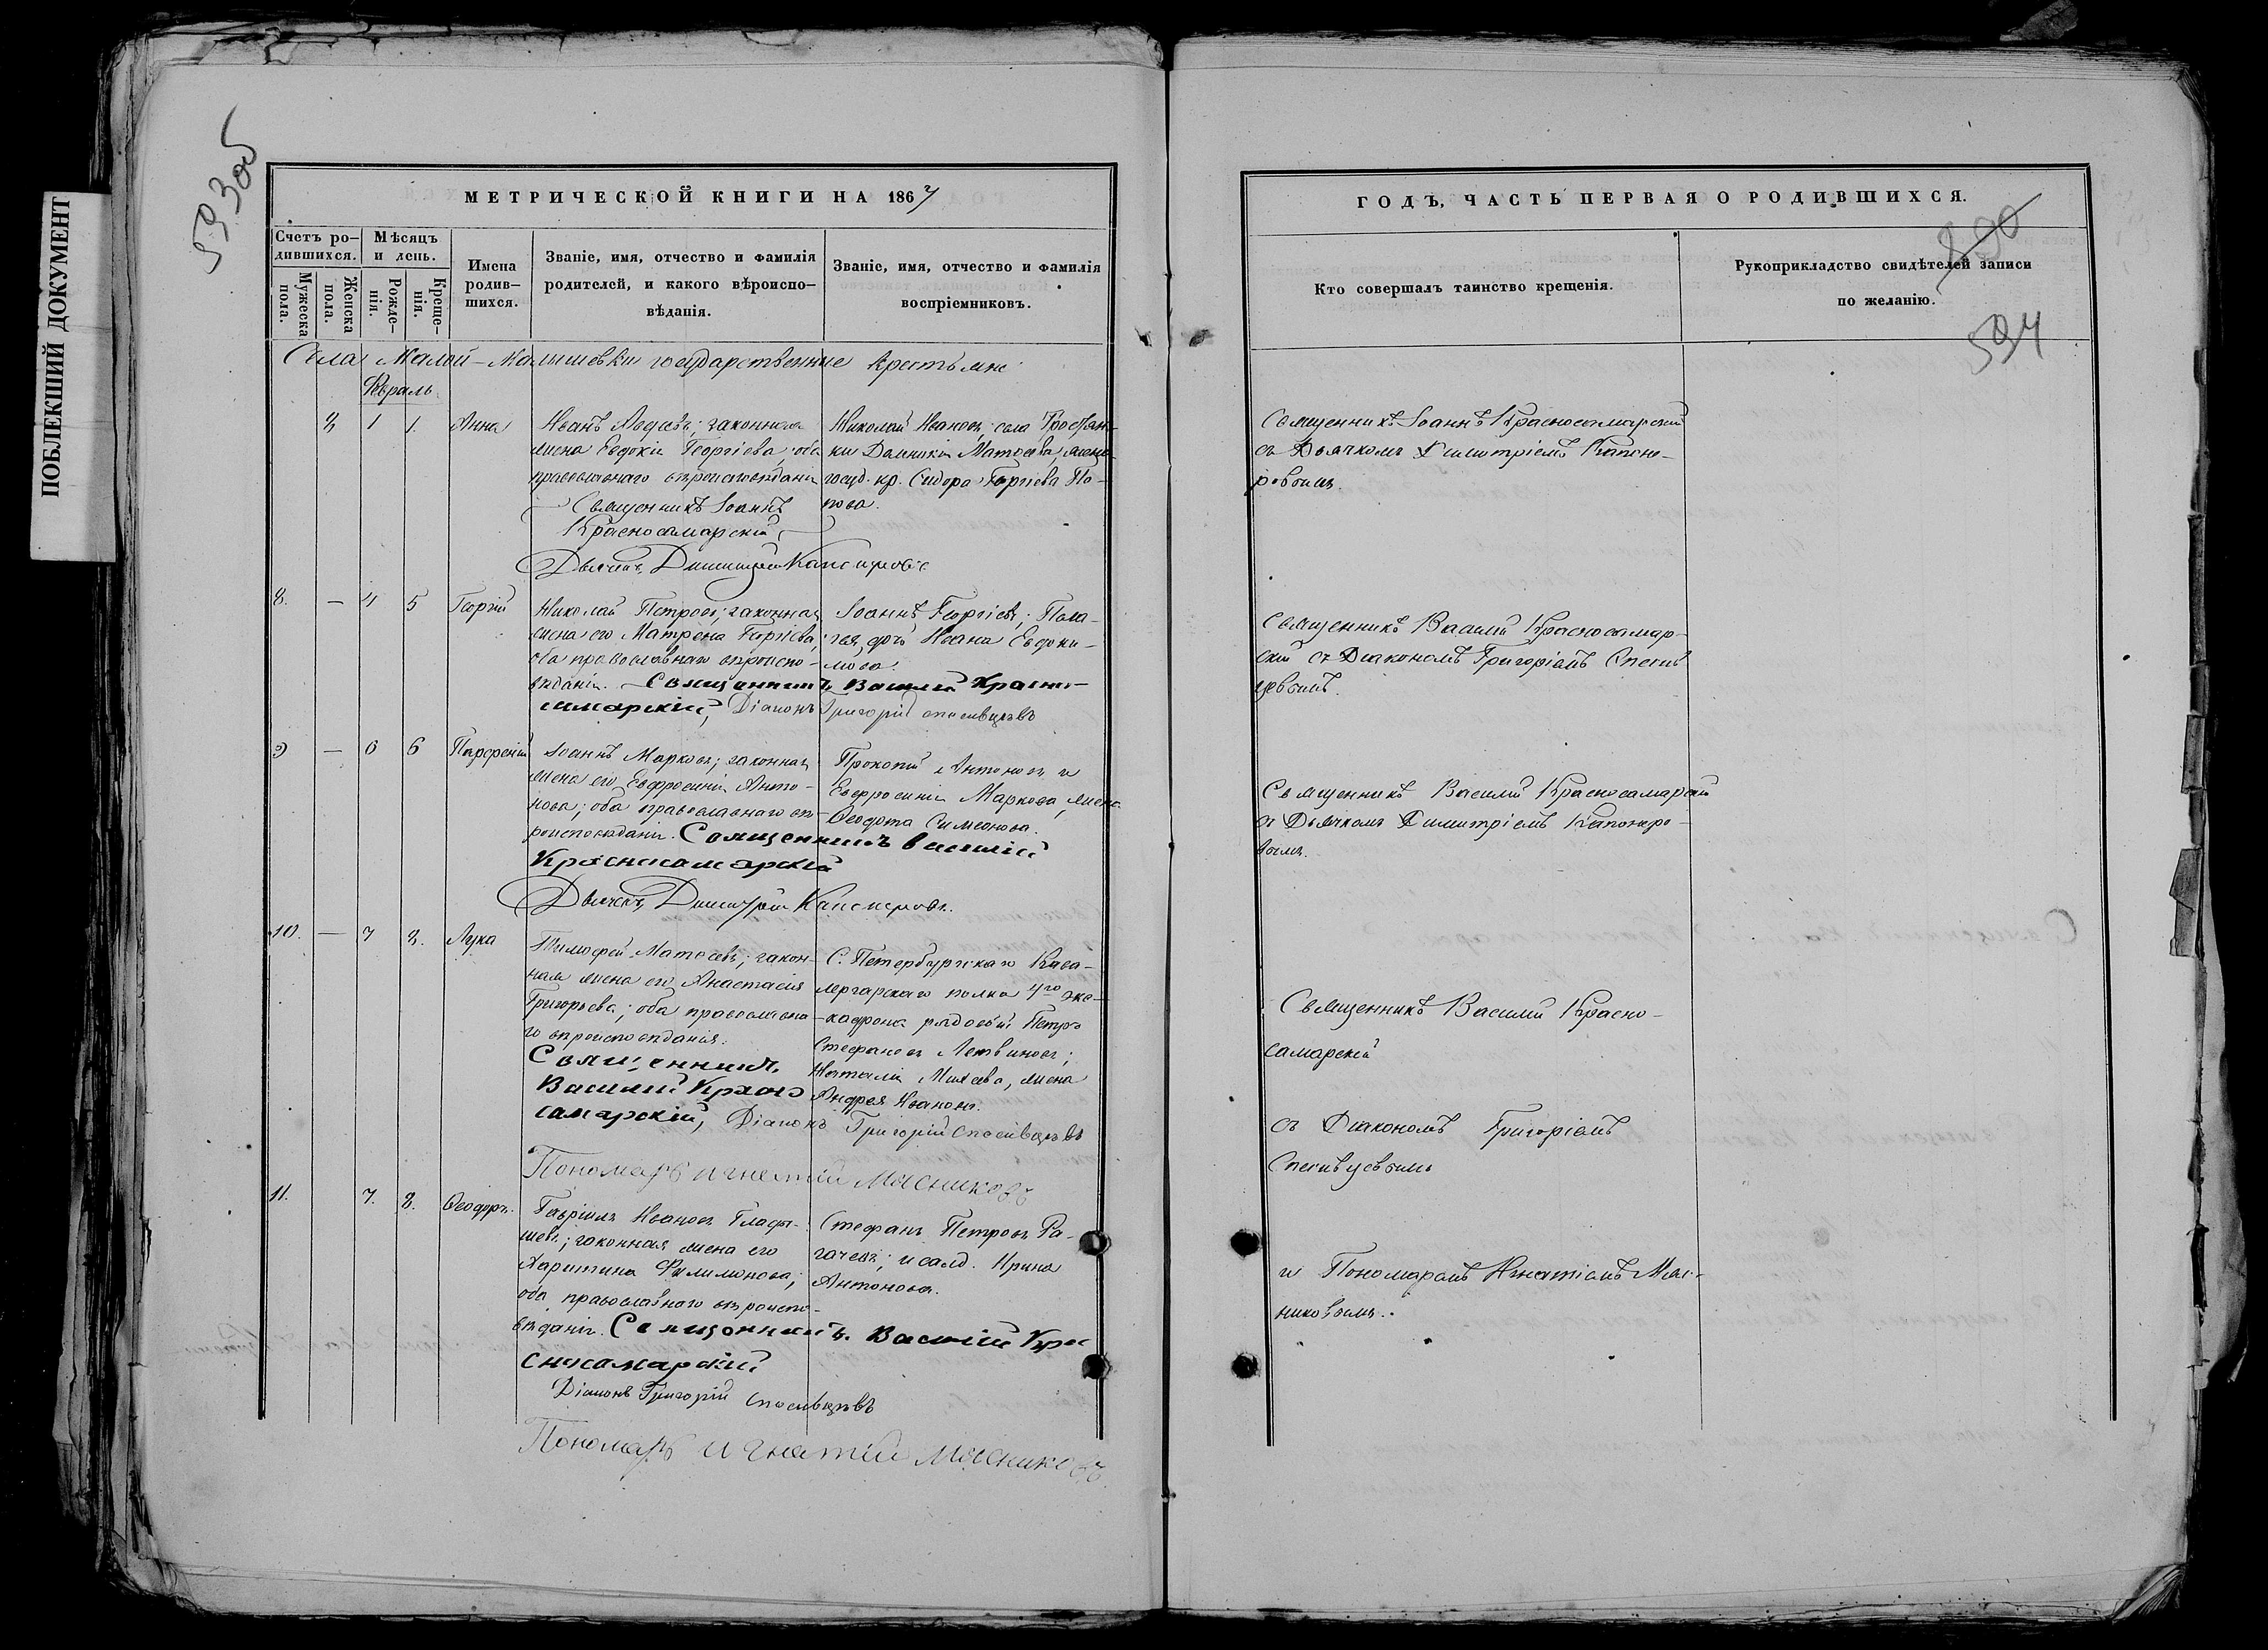 ПОБЛЕКШИЙ ДОКУМЕНТ
593об
МЕТРИЧЕСКОЙ КНИГИ НА 1867
Счетъ ро-
дившихся.
Мѣсяцъ
и день.
Мужеска
пола.
Женска
пола.
Рожде-
нія.
Креще-
нія.
Имена
родив-
шихся.
Званіе, имя, отчество и фамилія
родителей, и какого вѣроиспо-
вѣданія.
Званіе, имя, отчество и фамилія
воспріемниковъ.
Села Малой-Малышевки государственные крестьяне
Февраль.
1 1. Анна
Иванъ законная
жена Евдокія Георгіева; оба
православнаго вѣроисповѣданія
Священникъ Іоаннъ
Красносамарскій,
Дьячекъ Димитрій Капонеровъ
Николай Ивановъ; села
Матѳеева, жена
госуд. кр. Сидора Георгіева По-
пова.
8. — 4 5 Георгій
Николай Петровъ; законная
жена его Матрона Георгіева;
оба православнаго вѣроиспо-
вѣданія. Священникъ Василій Красно-
самарскій, Діаконъ Григорій Спесивцевъ
Іоаннъ Георгіевъ; Пела-
гея, дочь Ивана Евдоки-
мова.
9 — 6 6 Парфеній
Іоаннъ Марковъ; законная
жена его Евфросинія Анто-
нова; оба православнаго вѣ-
роисповѣданія. Священникъ Василій
Красносамарскій
Дьячекъ Димитрій Капонеровъ.
Прокопій Антоновъ и
Евфросинія Маркова, жена
Ѳеодота Симеонова.
10. — 7 8. Лука
Тимофей Матвеевъ; закон-
ная жена его Анастасія
Григорьева; оба православна-
го вѣроисповѣданія.
Священникъ
Василій Красно
самарскій, Діаконъ Григорій Спесивцевъ
Пономарь Игнатій Мясниковъ
С. Петербургскаго Кава-
лергарскаго полка 4го эхс-
кадрона рядовой Петръ
Стефановъ Литвиновъ;
Наталія Михеева, жена
Андрея Иванова.
11. 7. 8. Ѳеодоръ.
Гавріилъ Ивановъ Глады-
шевъ; законная жена его
Харитина Филимонова;
оба православнаго вѣроиспо-
вѣданія. Священникъ Василій Кра
сносамарскій
Діаконъ Григорій Спесивцевъ
Пономарь Игнатій Мясниковъ.
Стефанъ Петровъ Ра-
гачевъ; и салд. Ирина
Антонова.
ГОДЪ, ЧАСТЬ ПЕРВАЯ О РОДИВШИХСЯ.
594
Кто совершалъ таинство крещенія.
Рукоприкладство свидѣтелей записи
по желанію.
Священникъ Іоаннъ Красносамарскій
съ Дьячкомъ Димитріемъ Капоне-
ровымъ.
Священникъ Василій Красносамар-
скій съ Діакономъ Григоріемъ Спесив
цевымъ.
Священникъ Василій Красносамарскій
съ Дьячкомъ Димитріемъ Капонеро-
вымъ.
Священникъ Василій Красно-
самарскій
съ Діакономъ Григоріемъ
Спесивцевымъ
и Пономаремъ Игнатіемъ Мяс-
никовымъ.